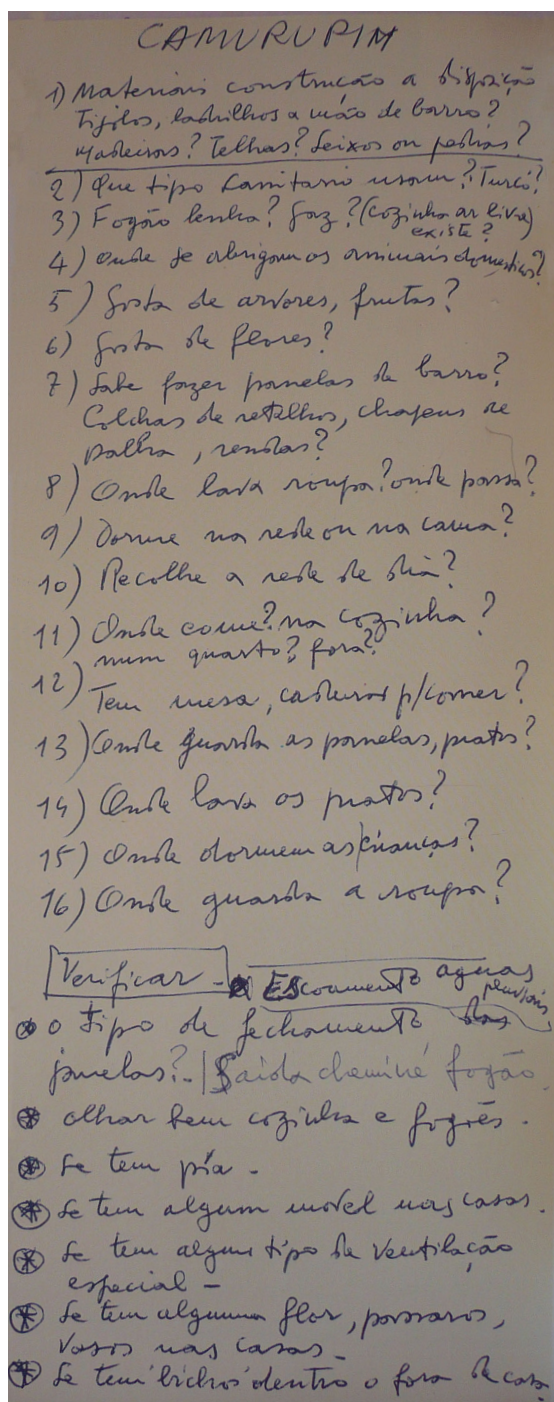 CAMURUPIM
1) Materiais construção a disposição
Tijolos, ladrilhos a mão de barro?
Madeiras? Telhas? Seixos ou pedras?
2) Que tipo Sanitario usam? Turco?
3) Fogão lenha? Gaz? (cozinha ar livre)
existe?
4) Onde se abrigam os animais domesticos?
5) Gosta de arvores, frutas?
6) Gosta de flores?
7) Sabe fazer panelas de barro?
Colchas de retalhos, chapeus de
palha, rendas?
8) Onde lava roupa? onde passa?
9) Dorme na rede ou na cama?
10) Recolhe a rede de dia?
11) Onde come? na cozinha?
num quarto? fora?
12) Tem mesa, cadeiras p/comer?
13) Onde guarda as panelas, pratos?
14) Onde lava os pratos?
15) Onde dormem as crianças?
16) Onde guarda a roupa?
Verificar - Escoamento aguas
pluviais
o tipo de fechamento das
janelas? - Saida cheminé fogão
olhar bem cozinha e fogões.
Se tem pia -
Se tem algum movel nas casas.
Se tem algum tipo de ventilação
especial -
Se tem alguma flor, passaros,
vasos nas casas -
Se tem bichos dentro o fora de casa.